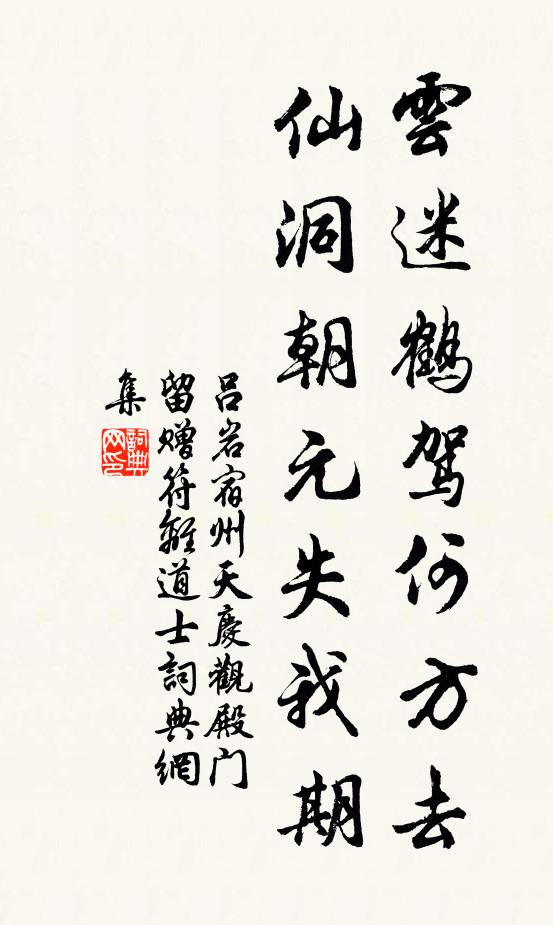 雲迷鶴駕何方去
仙洞朝元失我期
吕岩宿州天慶觀殿门
留赠符離道士詞典網
集
詞典
网印